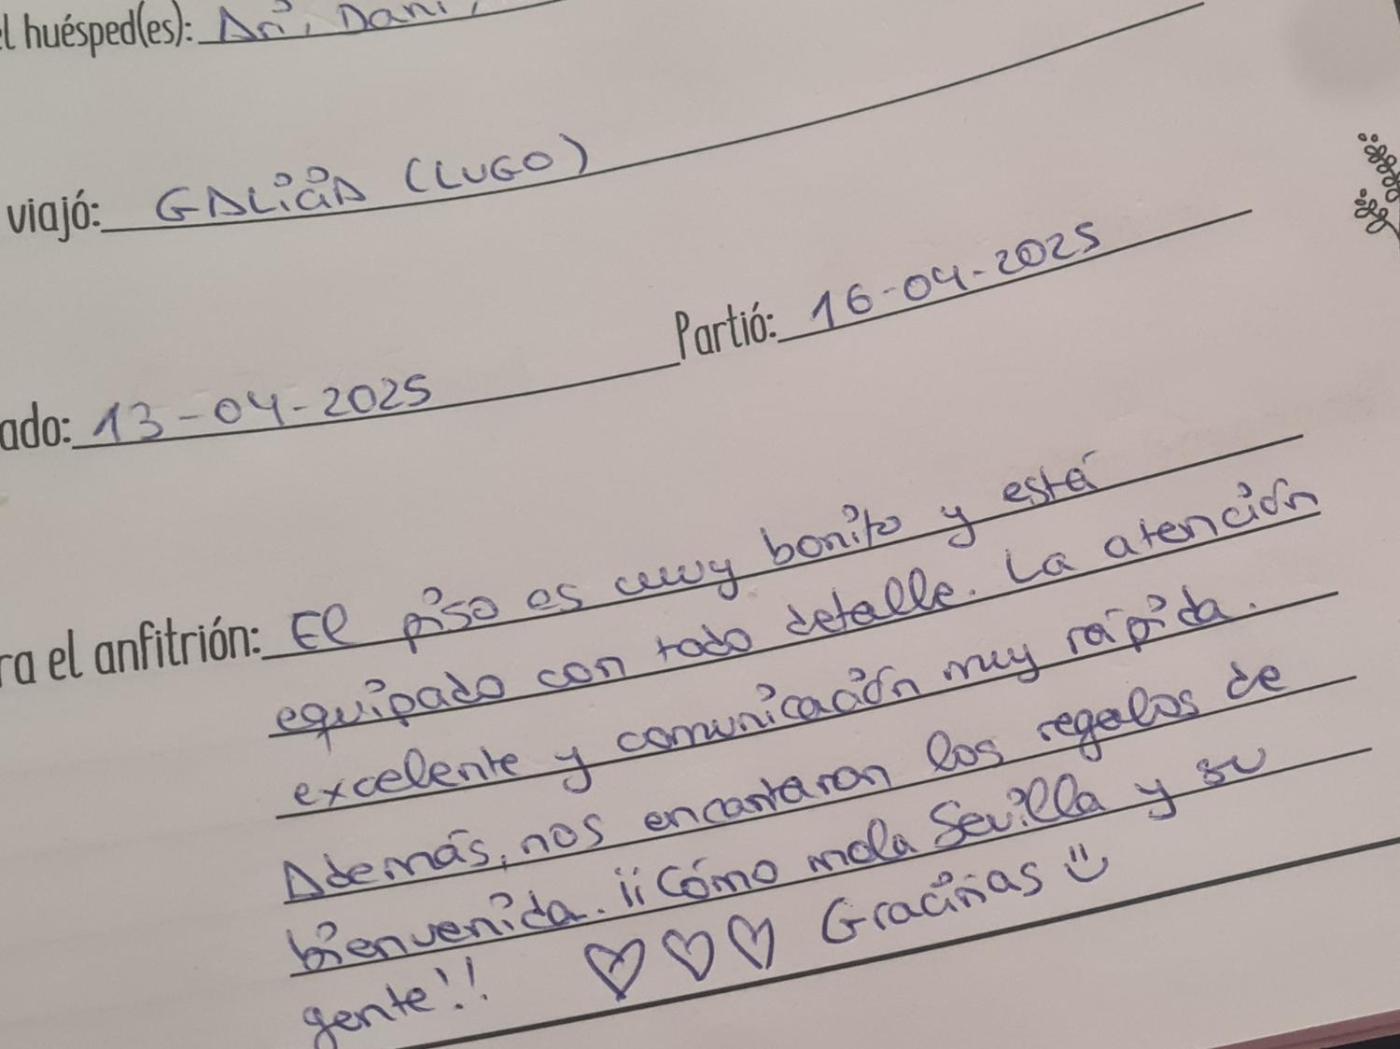 el huésped(es): Ari, Dani,
viajó: GALiciA (LUGO)
Partió: 16-04-2025
ado: 13-04-2025
ra el anfitrión: El piso es muy bonito y está
equipado con todo detalle. La atención
excelente y comunicación muy rápida.
Además, nos encantaron los regalos de
bienvenida. ¡¡Cómo mola Sevilla y su
gente!! ♡♡♡ Graciñas